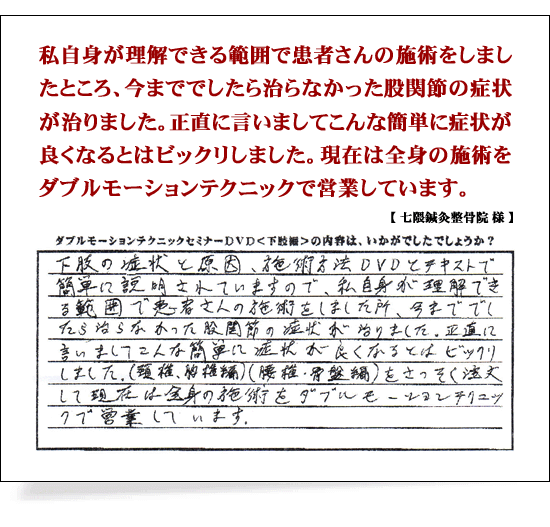 私自身が理解できる範囲で患者さんの施術をしまし
たところ、今まででしたら治らなかった股関節の症状
が治りました。正直に言いましてこんな簡単に症状が
良くなるとはビックリしました。現在は全身の施術を
ダブルモーションテクニックで営業しています。
【 七隈鍼灸整骨院 様 】
ダブルモーションテクニックセミナーDVD<下肢編>の内容は、いかがでしたでしょうか?
下肢の症状と原因、施術方法DVDとテキストで
簡単に説明されていますので、私自身が理解でき
る範囲で患者さんの施術をしました所、今まででし
たら治らなかった股関節の症状が治りました。正直に
言いましてこんな簡単に症状が良くなるとはビックリ
しました。(頸椎、胸椎編)(腰椎・骨盤編)をさっそく注文
して現在は全身の施術をダブルモーションテクニッ
クで営業しています。